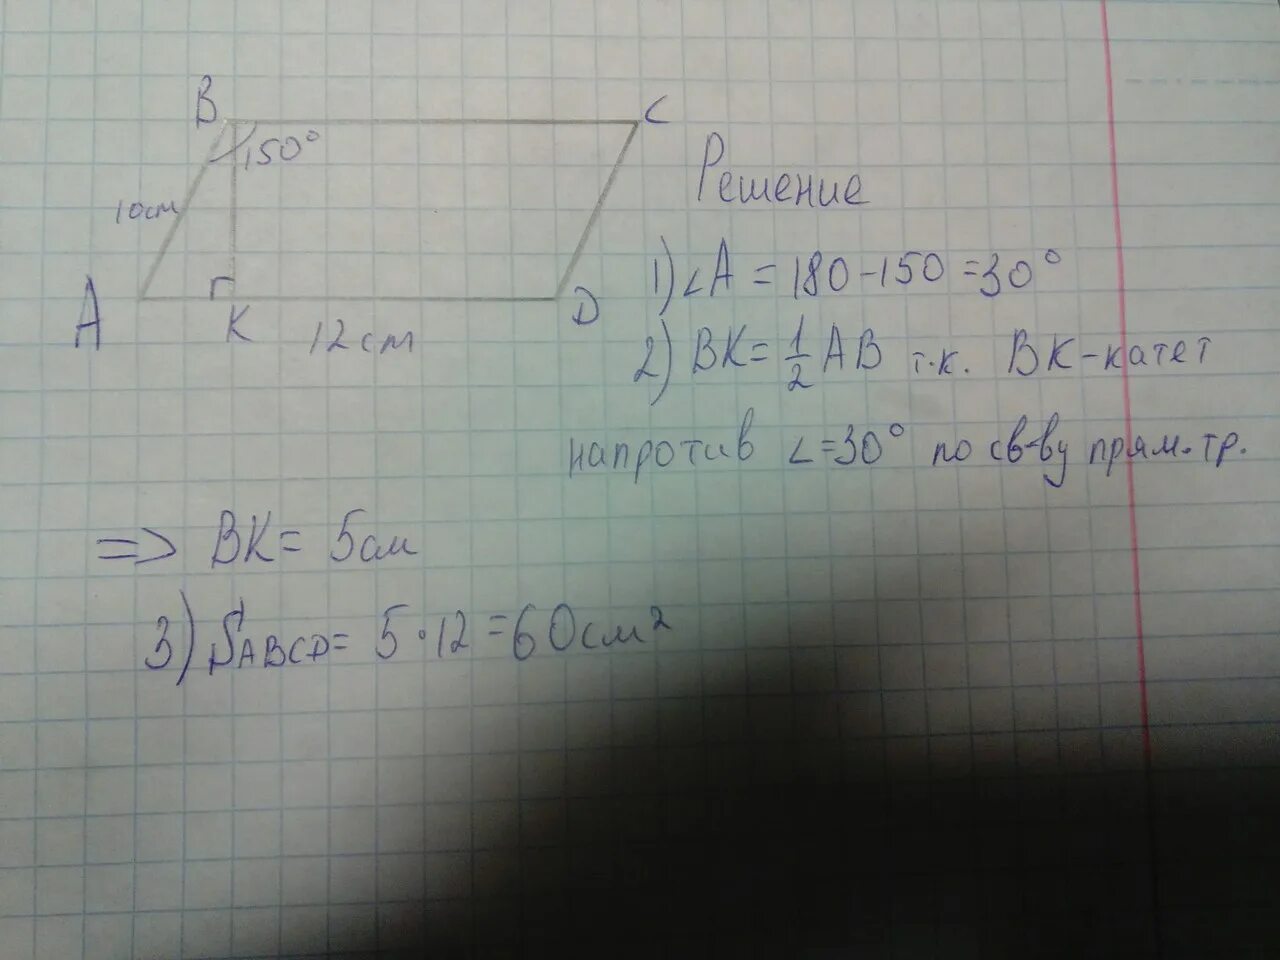 B
C
150°
10см
A
K
D
12см
Решение
1) ∠A = 180-150 =30°
2) BK= 1/2 AB т.к. BK-катет
напротив ∠=30° по св-ву прям.тр.
=> BK= 5см
3) SABCD= 5·12 =60см²